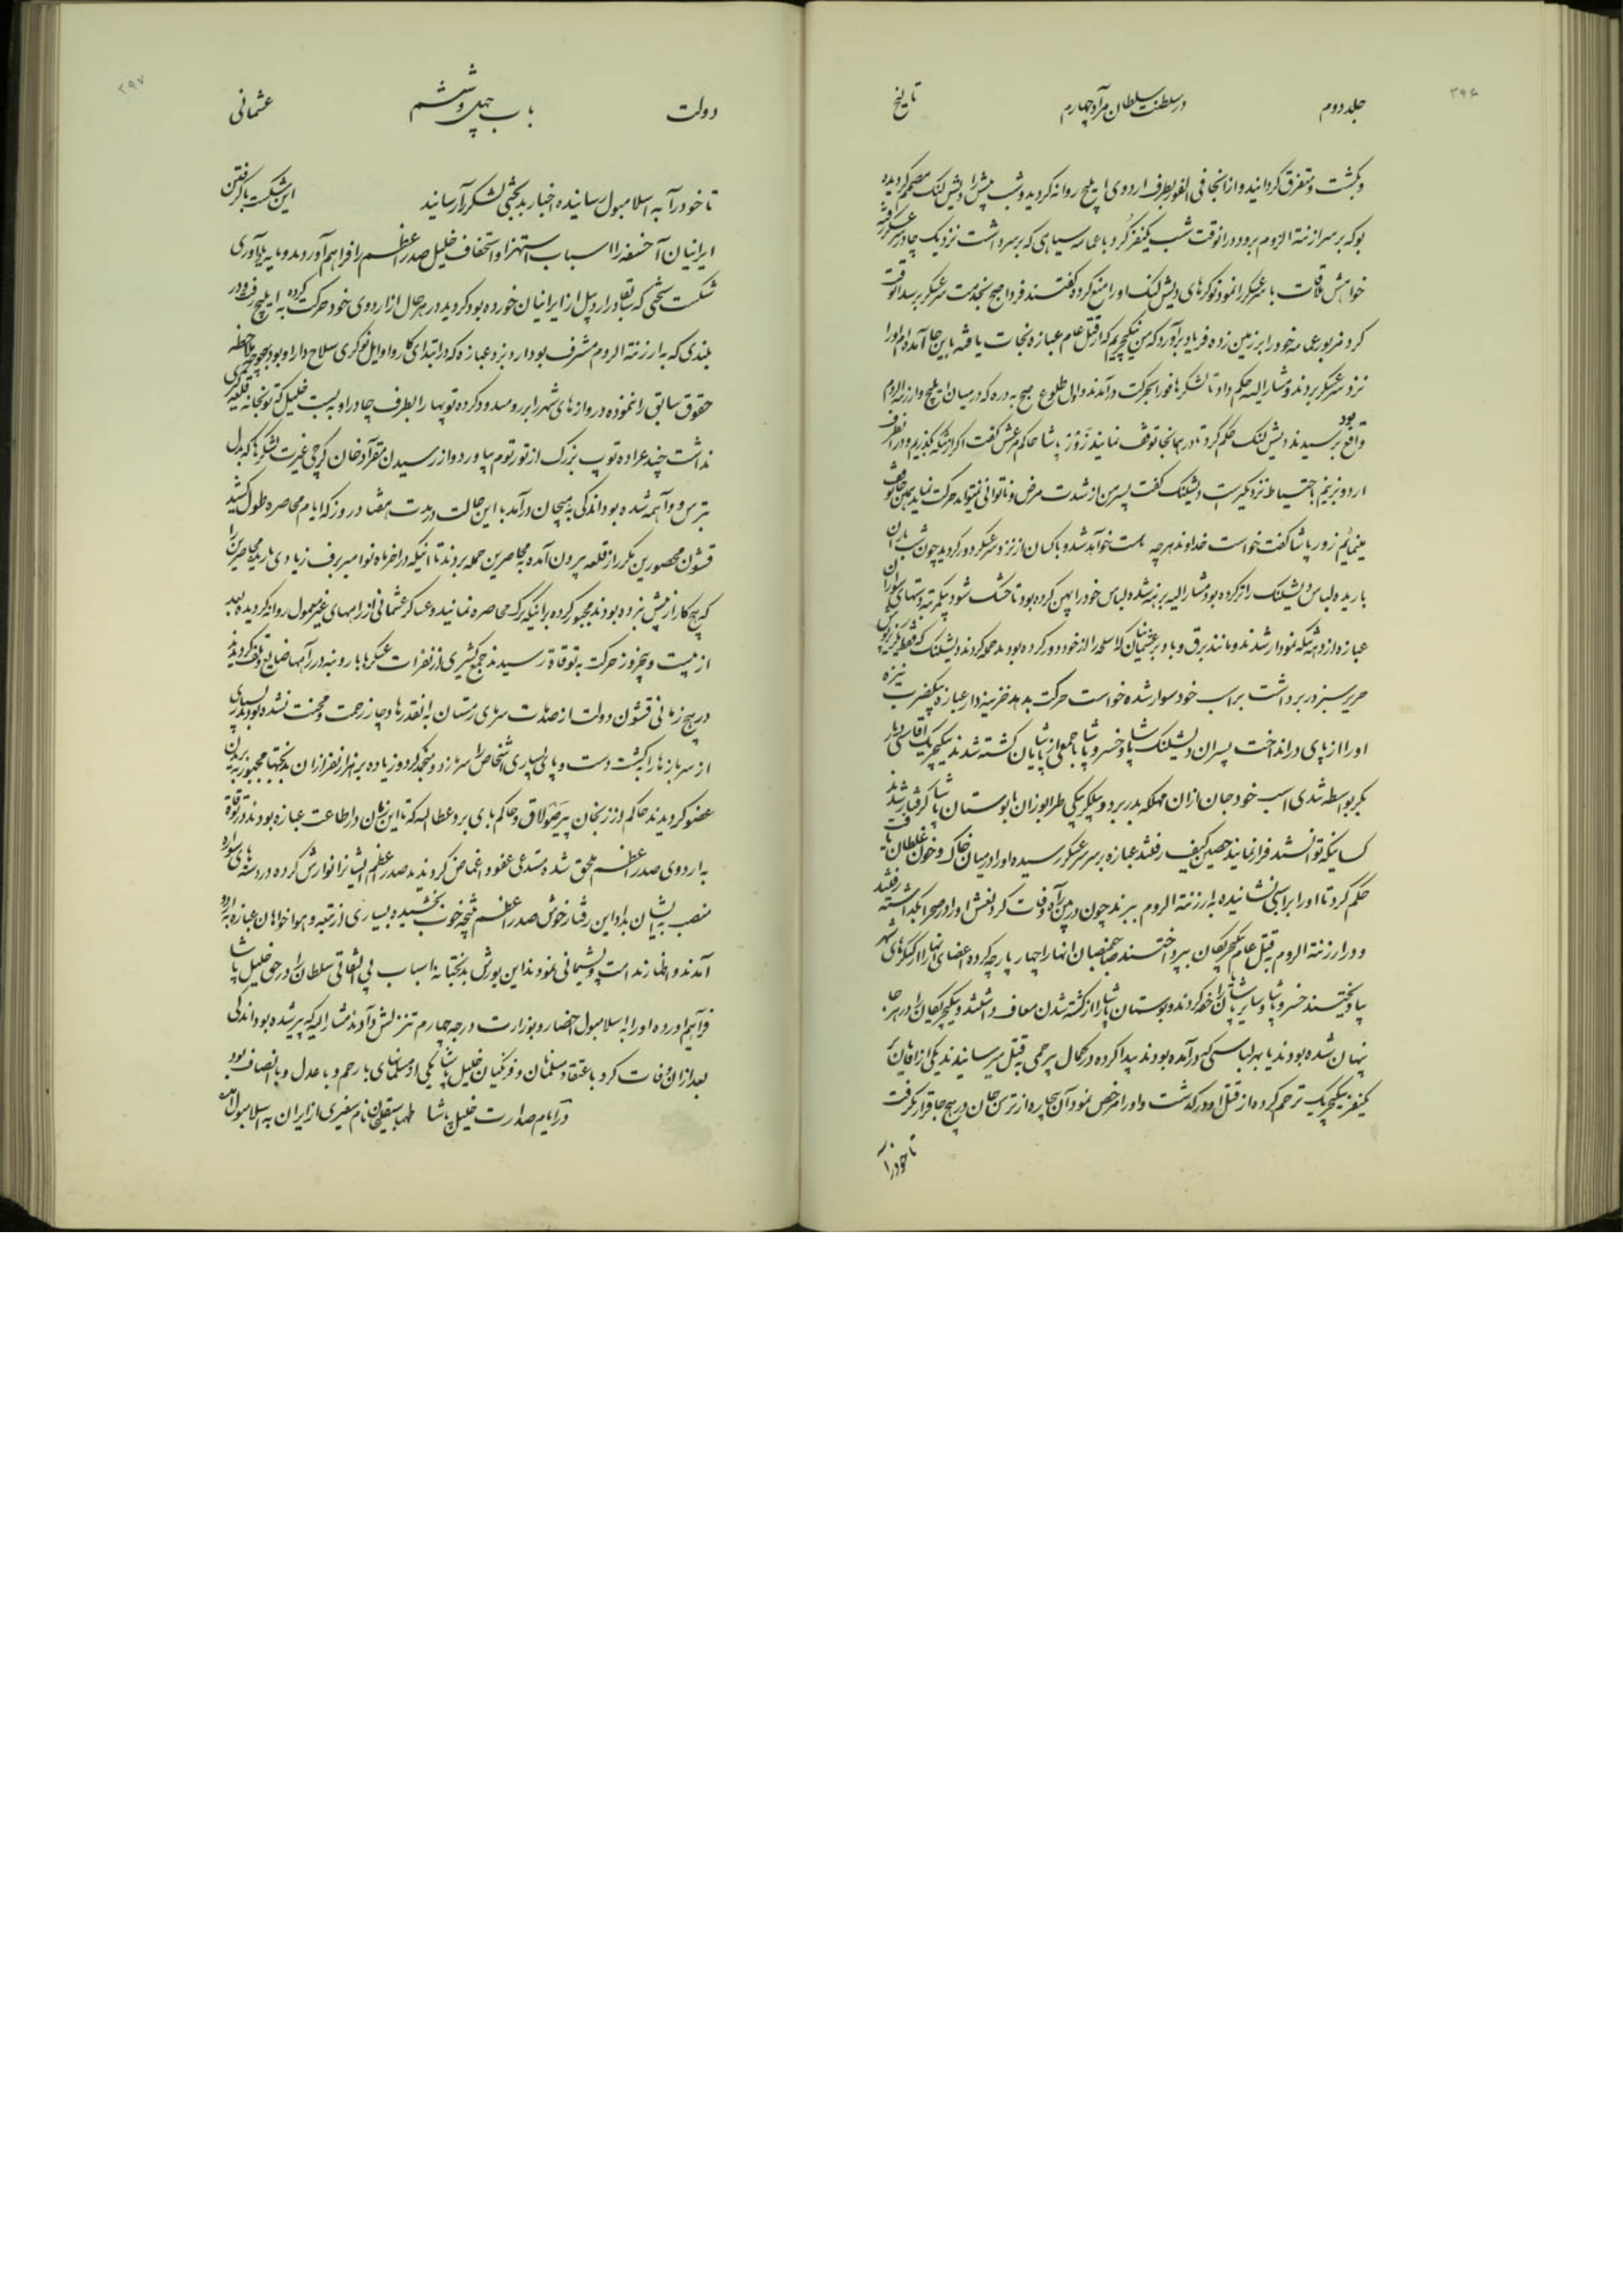 ۳۹۶
جلد دوم
در سلطنت سلطان مراد چهارم
تاریخ
و بکشت و متفرق گردانید و از انجا فی الفور بطرف اردوی ایلیج روانه گردید و شب پیش را دیشلنک مصمم گردیده
بود که بر سر ارزنة الروم برود در انوقت شب یکنفر کرد با عمامه سیاهی که بر سر داشت نزدیک چادر سرعسکر رفته
خواهش ملاقات با سرعسکر را نمود نوکرهای دیشلنک او را منع کرده گفتند فردا صبح بخدمت سرعسکر برسد انوقت
کرد مزبور عمامه خود را بر زمین زده فریاد برآورد که من ینگیچریم که از قتل عام عبازه نجات یافته باین جا آمده‌ام او را
نزد سرعسکر بردند مشار الیه حکم داد تا لشکرها فورا بحرکت درآمدند و اول طلوع صبح به دره که در میان ایلیج و ارزنة الروم
واقع بود رسیدند دیشلنک حکم کرد تا در همانجا توقف نمایند زور پاشا حاکم مرعش گفت اگر از تنگه بگذریم و در انطرف
اردو بزنیم باحتیاط نزدیکتر است دیشلنک گفت پسر من از شدت مرض و ناتوانی نمیتواند حرکت نماید همین جا توقف
مینمائیم زور پاشا گفت خواست خداوند هرچه هست خواهد شد و باکیان از نزد سرعسکر دور گردید چون شب باران
باریده لباس دیشلنک را تر کرده بود مشار الیه برهنه شده لباس خود را پهن کرده بود تا خشک شود یکمرتبه دستهای سواران
عبازه از دهنه تنگه نمودار شدند و مانند برق و باد بر عثمانیان که اسلحه را از خود دور کرده بودند حمله کردند دیشلنک که فقط یک پیراهن
حریر سبز در بر داشت بر اسب خود سوار شده خواست حرکت بدهد خزینه‌دار عبازه بیکضرب نیزه
او را از پای در انداخت پسران دیشلنک پاشا و خسرو پاشا با جمعی از پاشایان کشته شدند ینگیچریک آقاسی دیار
بکر بواسطه تندی اسب خود جان از ان مهلکه بدر برد و بیگلربیگی طرابوزان با بوستان پاشا گرفتار شدند
کسانیکه توانستند فرار نمایند بحصین کیف رفتند عبازه بر سر سرعسکر رسیده او را در میان خاک و خون غلطان یافت
حکم کرد تا او را بر اسبی نشانیده به ارزنة الروم ببرند چون در بین راه وفات کرد نعش او را در صحرا بگذاشته رفتند
و در ارزنة الروم بقتل عام ینگیچریکان بپرداختند صاحبمنصبان انها را چهار پارچه کرده اعضای انها را از کنگره‌های شهر
بیاویختند خسرو پاشا و سایر پاشایان را خفه کردند و بوستان پاشا را از کشته شدن معاف داشتند و ینگیچریکان را در هر جا
پنهان شده بودند یا بهر لباسی که درآمده بودند پیدا کرده در کمال بیرحمی بقتل میرسانیدند یکی از اقایان
یکنفر ینگیچریک ترحم کرده از قتل او درگذشت و او را مرخص نمود آن بیچاره از ترس جان در هیچ جا قرار نگرفت
تا خود را
۳۹۷
دولت
باب چهل و ششم
عثمانی
تا خود را به اسلامبول رسانیده اخبار بدبختی لشکر را رسانید این شکست باز گرفتن
ایرانیان آخسقه را اسباب استهزا و استخفاف خلیل صدر اعظم را فراهم آوردند و مایه یادآوری
شکست سختی که سابقا در اردبیل از ایرانیان خورده بود گردید در هر حال از اردوی خود حرکت کرده به ایلیج رفت و در
بلندی که به ارزنة الروم مشرف بود اردو بزد عبازه که در ابتدای کار و اوایل نوکری سلاح‌دار او بود بهیچوجه ملاحظه
حقوق سابق را ننموده دروازهای شهر را بر رو مسدود کرده توپها را بطرف چادر او ببست خلیل که توپخانه قلعه‌گیری
نداشت چند عراده توپ بزرگ از تورتوم بیاورد و از رسیدن مقرآد خان گرجی غیرت لشکرها که بدل
بترس و واهمه شده بود اندکی به هیجان درآمد با این حالت در مدت هفتاد روز که ایام محاصره طول کشید
قشون محصورین مکرر از قلعه بیرون آمده به محاصرین حمله بردند تا انیکه در اخر ماه نوامبر برف زیادی باریده محاصرین را
که هیچ کار از پیش نبرده بودند مجبور کرده بر اینکه ترک محاصره نمایند و عساکر عثمانی از راههای غیر معمول روانه گردیده بعد
از بیست و پنجروز حرکت به توقاة رسیدند جمع کثیری از نفرات عسکرها با رو بنه در راهها ضایع و تلف گردیدند
در هیچ زمانی قشون دولت از صدمات سرمای زمستان به اینقدرها دچار زحمت و محنت نشده بودند بسیاری
از سربازها را بکشت دست و پای بسیاری اشخاص را سرما زد و منجمد کرد و زیاده بر هزار نفر از ان بدبختها مجبور به بریدن
عضو گردیدند حاکم ارزنجان پیر صولاق و حاکم بای برد عطا الله که تا این زمان در اطاعت عبازه بودند در توقاة
به اردوی صدر اعظم ملحق شده مستدعی عفو و اغماض گردیدند صدر اعظم ایشانرا نوازش کرده در دستهای سواره
منصب به ایشان بداد این رفتار خوش صدر اعظم نتیجه خوب بخشیده بسیاری از تبعه و هواخواهان عبازه به اردو
آمدند و اظهار ندامت و پشیمانی نمودند این یورش بدبختانه اسباب بی التفاتی سلطان را در حق خلیل پاشا
فراهم آورده او را به اسلامبول احضار و بوزارت درجه چهارم تنزلش دادند مشار الیه که پیر شده بود اندکی
بعد از ان وفات کرد باعتقاد مسلمانان و فرنگیان خلیل پاشا یکی از مسلمانهای با رحم و با عدل و با انصاف بود
در ایام صدارت خلیل پاشا طهماسبقلیخان نام سفیری از ایران به اسلامبول آمده